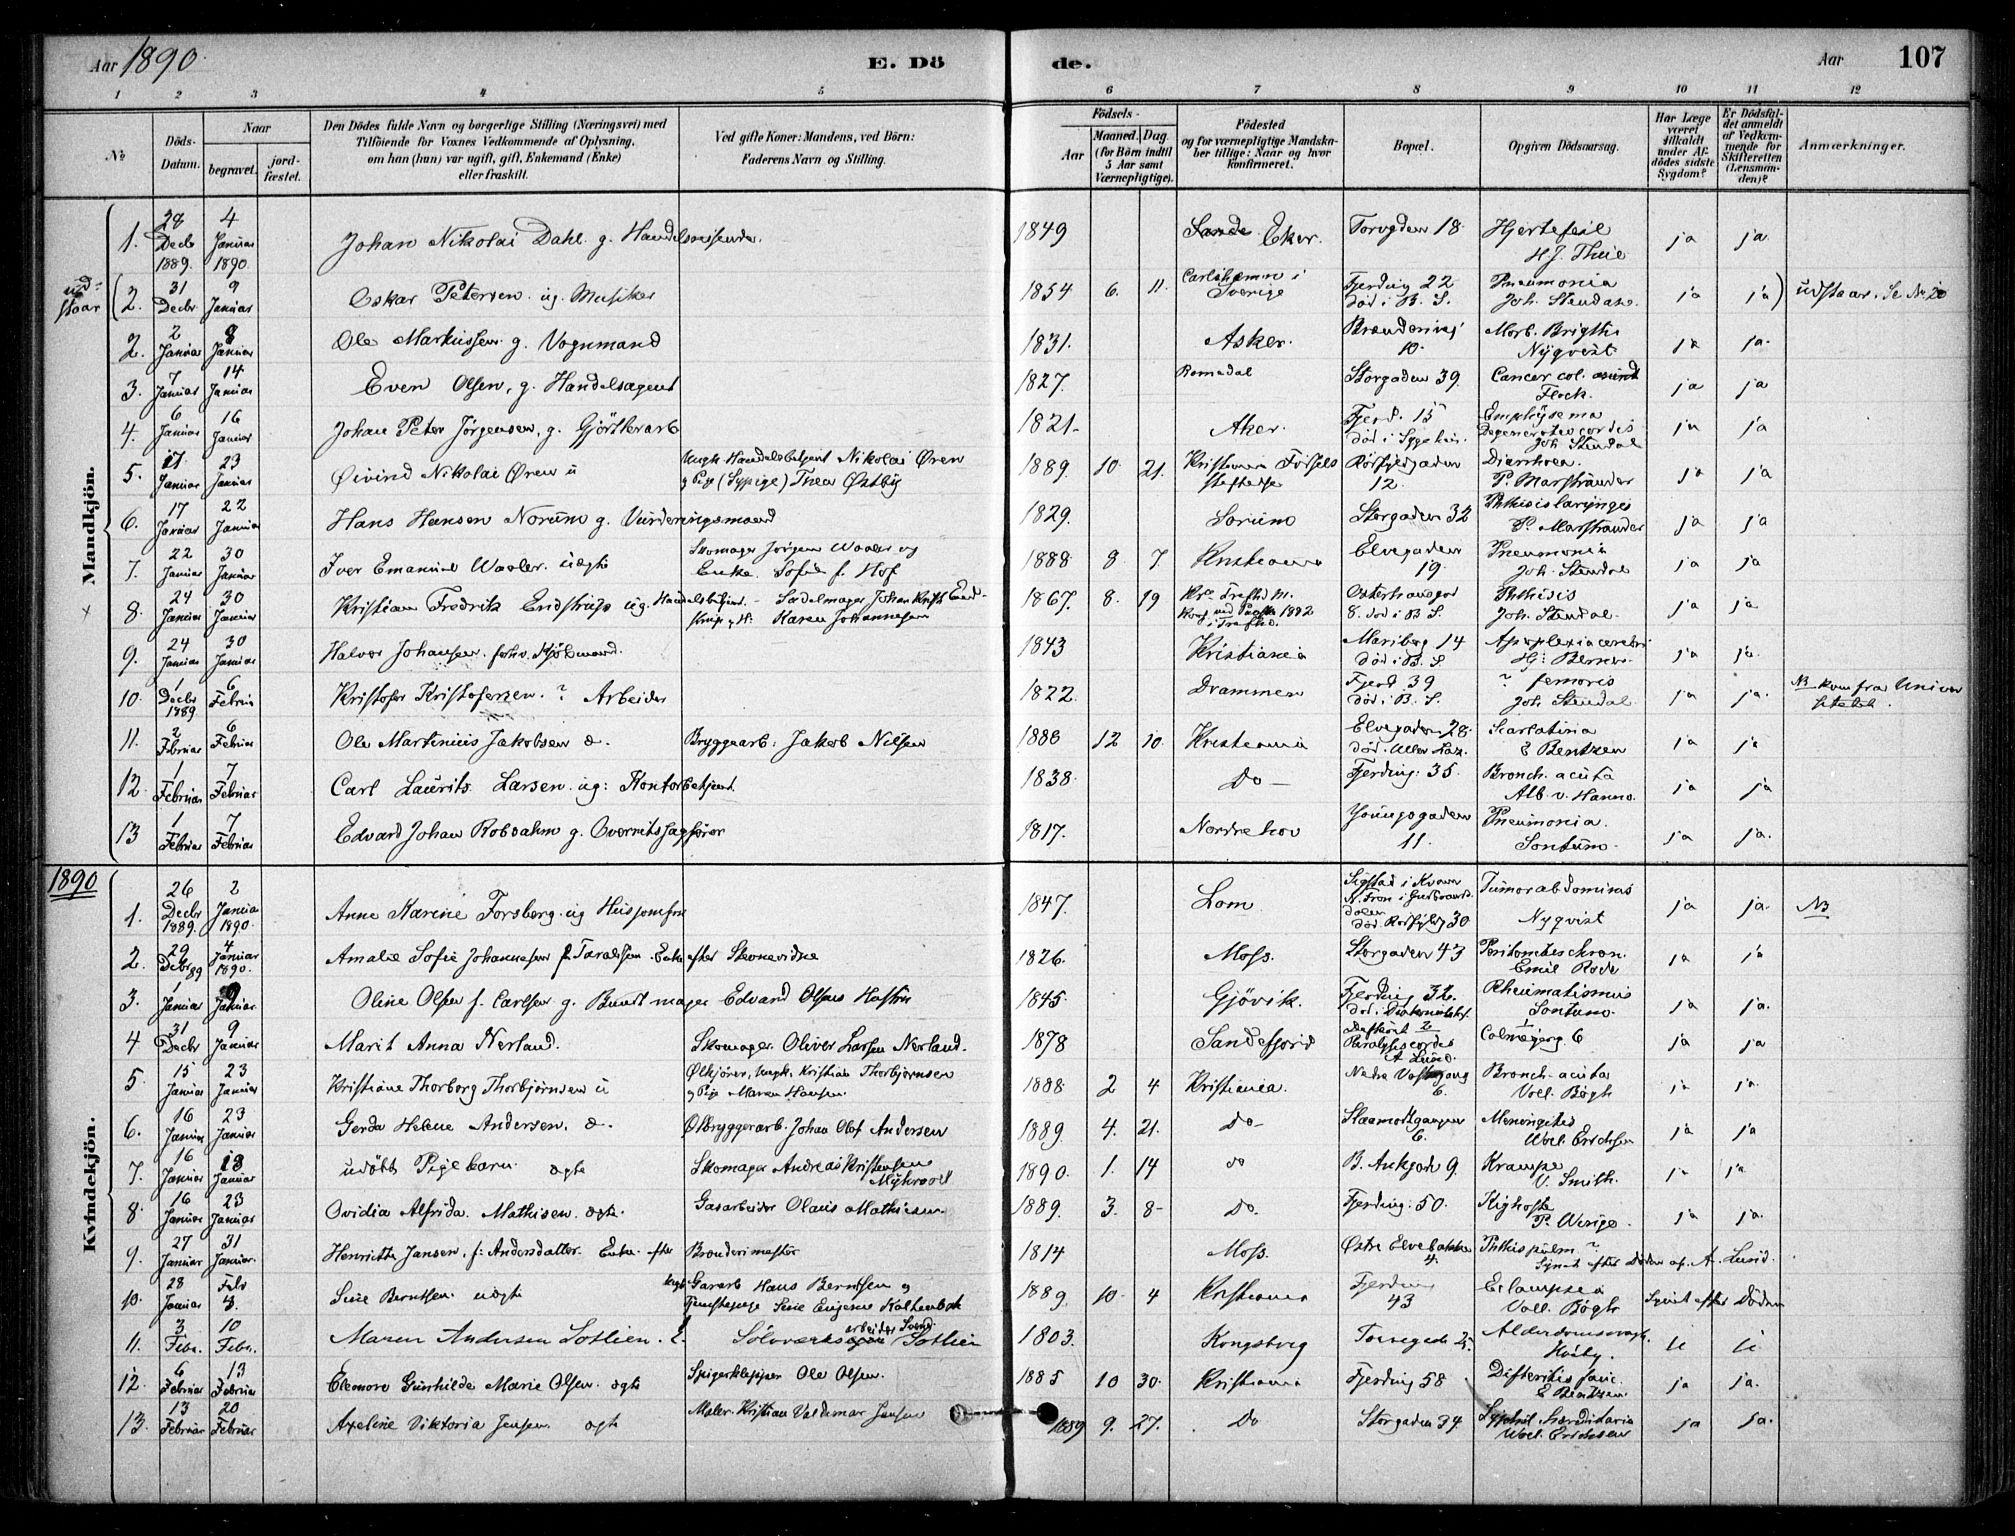 Aar 1890. E. Dö de. Aar 107
1 2 3 4 5 6 7 8 9 10 11 12
No Döds-Datum. Naar begravet. jordfæstet.
Den Dödes fulde Navn og borgerlige Stilling (Næringsvei) med
Tilföiende for Voxnes Vedkommende af Oplysning,
om han (hun) var ugift, gift, Enkemand (Enke)
eller fraskilt.
Ved gifte Koner: Mandens, ved Börn:
Faderens Navn og Stilling.
Födsels-
Aar Maaned. Dag.
(for Börn indtil 5 Aar samt Værnepligtige).
Födested
og for værnepligtige Mandskaber tillige: Naar og hvor konfirmeret.
Bopæl.
Opgiven Dödsaarsag.
Har Læge været tilkaldt under Afdödes sidste Sygdom?
Er Dödsfaldet anmeldt af Vedkommende for Skifteretten (Lensmanden)?
Anmærkninger.
Mandkjön.
1. 28 Decbr 1889. 4 Januar 1890. Johan Nikolai Dahl. g. Handelsreisende. 1849 Eker. Torvgaden 18. Hjertefeil ja ja
udstaar (2. 31 Decbr 9 Januar Oskar Petersen ug. Musiker 1854 6. 11. Sverige Fjerding 22 Död i B. S. Pneumonia ja ja) udstaar. Se No 20
2. 2 Januar 8 Januar Ole Markussen. g. Vognmand 1831. Asker. 10. Morb. Brigthi Nyqvist ja ja
3. 7 Januar 14 Januar Even Olsen, g. Handelsagent 1827. Romedal Storgaden 39. Cancer col. ja ja
4. 6 Januar 16 Januar Johan Peter Jörgensen, g. Gjörtlerarb 1821. Aker. Fjerd. 15 Emphysema Joh. Stendal ja ja
5. 17 Januar 23 Januar Øivind Nikolai Øren u Ungk. Handelsbetjent Nikolai Øren og Pige (Sypige) Thea Østby 1889. 10. 21. Kristiania Födselsstiftelse 12. Diarrhoea. P. Marstrander ja ja
6. 17 Januar 22 Januar Hans Hansen Norum g. Vurderingsmand 1829. Sørum Storgaden 32 Phthisis laryngis P. Marstrander ja ja
7. 22 Januar 30 Januar Iver Emanuel Waaler. uægte Skomager Jörgen Waaler og Enke. Sofie f. Hof 1888 8 7. Kristiania Elvegaden 19 Pneumonia Joh. Stendal ja ja
8. 24 Januar 30 Januar Kristian Fredrik ug. Handelsbetjent. Sadelmager Johan Krist. Karen Johannesen 1867. 8. 19 8. död i B. S. Phthisis Joh. Stendal. ja ja
9. 24 Januar 30 Januar Halvor Johansen. 1843 Kristiania Mariberg 14 död i B. S. Apoplexia cerebri ja ja
10. 1 Decbr 1889 6 Februar Kristofer Kristofersen. ? Arbeider 1822. Drammen Fjerd 39 död i B. S. ? femoris Joh. Stendal ja ja. NB kom fra Universitetet.
11. 2 Februar 6 Februar Ole Martinius Jakobsen æ. Bryggearb. Jakob Nilsen 1888 12 10. Kristiania Elvegaden 28. Scarlatina E Bentzen ja ja
12. 1 Februar 7 Februar Carl Laurits Larsen. ug: Kontorbetjent. 1838. Do Fjerding. 35. Bronch. acuta Alb. v. Hanno. ja ja
13 1 Februar 7 Februar Edvard Johan Robsahm g. Overretssagförer 1817. Norderhov Youngsgaden 11. Pneumonia. Sontum. ja ja.
1890
Kvindekjön.
1. 26 Decbr 1889. 2 Januar 1890. Anne Karine Forsberg. ug Husjomfru 1847. Lom Tumor abdominis Nyqvist ja ja. NB
2. 29 Decbr 89 4 Januar 1890. Amalie Sofie Johannesen f. Taraldsen. Enke efter 1826. Moss. Storgaden 43 Emil Rode ja ja
3. 1 Januar 9 Januar. Oline Olsen f. Carlsen g. Buntmager Edvard Olsens Hustru 1845. Gjövik. Fjerding 32. Rheumatismus Sontum. ja ja.
4 31 Decbr 9. Januar Marit Anna Nerland. Skomager. Oliver Larsen Nerland. 1878 Sandefjord Paralysis cordis A Lund. 6 ja ja
5. 15 Januar 23 Januar Kristiane Thorborg Thorbjörnsen u Ølkjörer, Ungk. Kristian Thorbjörnsen og Pige Maren Hansen. 1888 2 4 Kristiania. 6. Bronch. acuta Voll. Bögh ja ja.
6. 16 Januar 23 Januar Gerda Helene Andersen. æ. Ølbryggerarb. Johan Olof Andersen 1889 4. 21. Do 6. Meningitis ja ja
7. 16 Januar 18 Januar udöbt Pigebarn. ægte Skomager Andreas Kristensen 1890. 1. 14 do B. Ankgade 9. Krampe V. Smith. ja ja
8. 16 Januar 23 Januar Ovidia Alfrida. Mathisen. ægte. Gasarbeider Olaus Mathisen 1889. 3. 8 Do. Fjerding. 50. Kighoste ja ja
9. 27 Januar 31 Januar. Henriette Jansen, f. Andersdatter. Enke. efter Brænderimester 1814 Moss. Østre Elvebakke 4. Phthis. pulm. ? Synet efter Döden af. A. Lund.
10. 28 Januar Feb 3. Sine Berntsen uægte Ungk. Gasarb Hans Berntsen og Tjenestepige Sine Eugenie 1889. 10 4 Kristiania Fjerding 43 Eclampsia Voll. Bögh. Synet efter Döden
11. 3 Febr. 10 Febr. Maren Andersen Sotlien. E. Sölvværksarbeider Sotlien 1803. Kongsberg Torvegade 25. ja ja
12. 6 Februar 13 Februar Eleonore Gunhilde Marie Olsen. ægte Ole Olsen. 1885 10 30. Kristiania Fjerding 58 Difteritis E Bentzen. ja ja.
13. 13 Februar 20 Februar Axeline Viktoria Jensen ægte Maler. Kristian Valdemar Jensen 1889 9. 27. Do Storgaden 34. Syphil. hæreditaria ja ja.